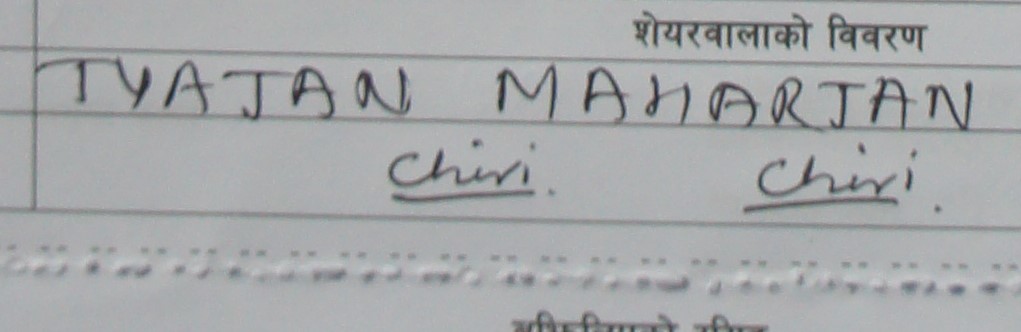 शेयरवालाको विवरण
TYAJAN MAHARJAN
Chiri. Chiri.